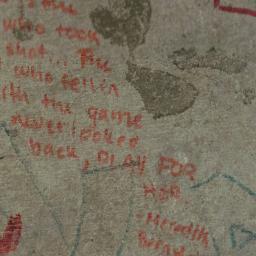 the
who took
shot... The
who fell in
the game
never looked
back, PLAY FOR
HER.
-Meredith